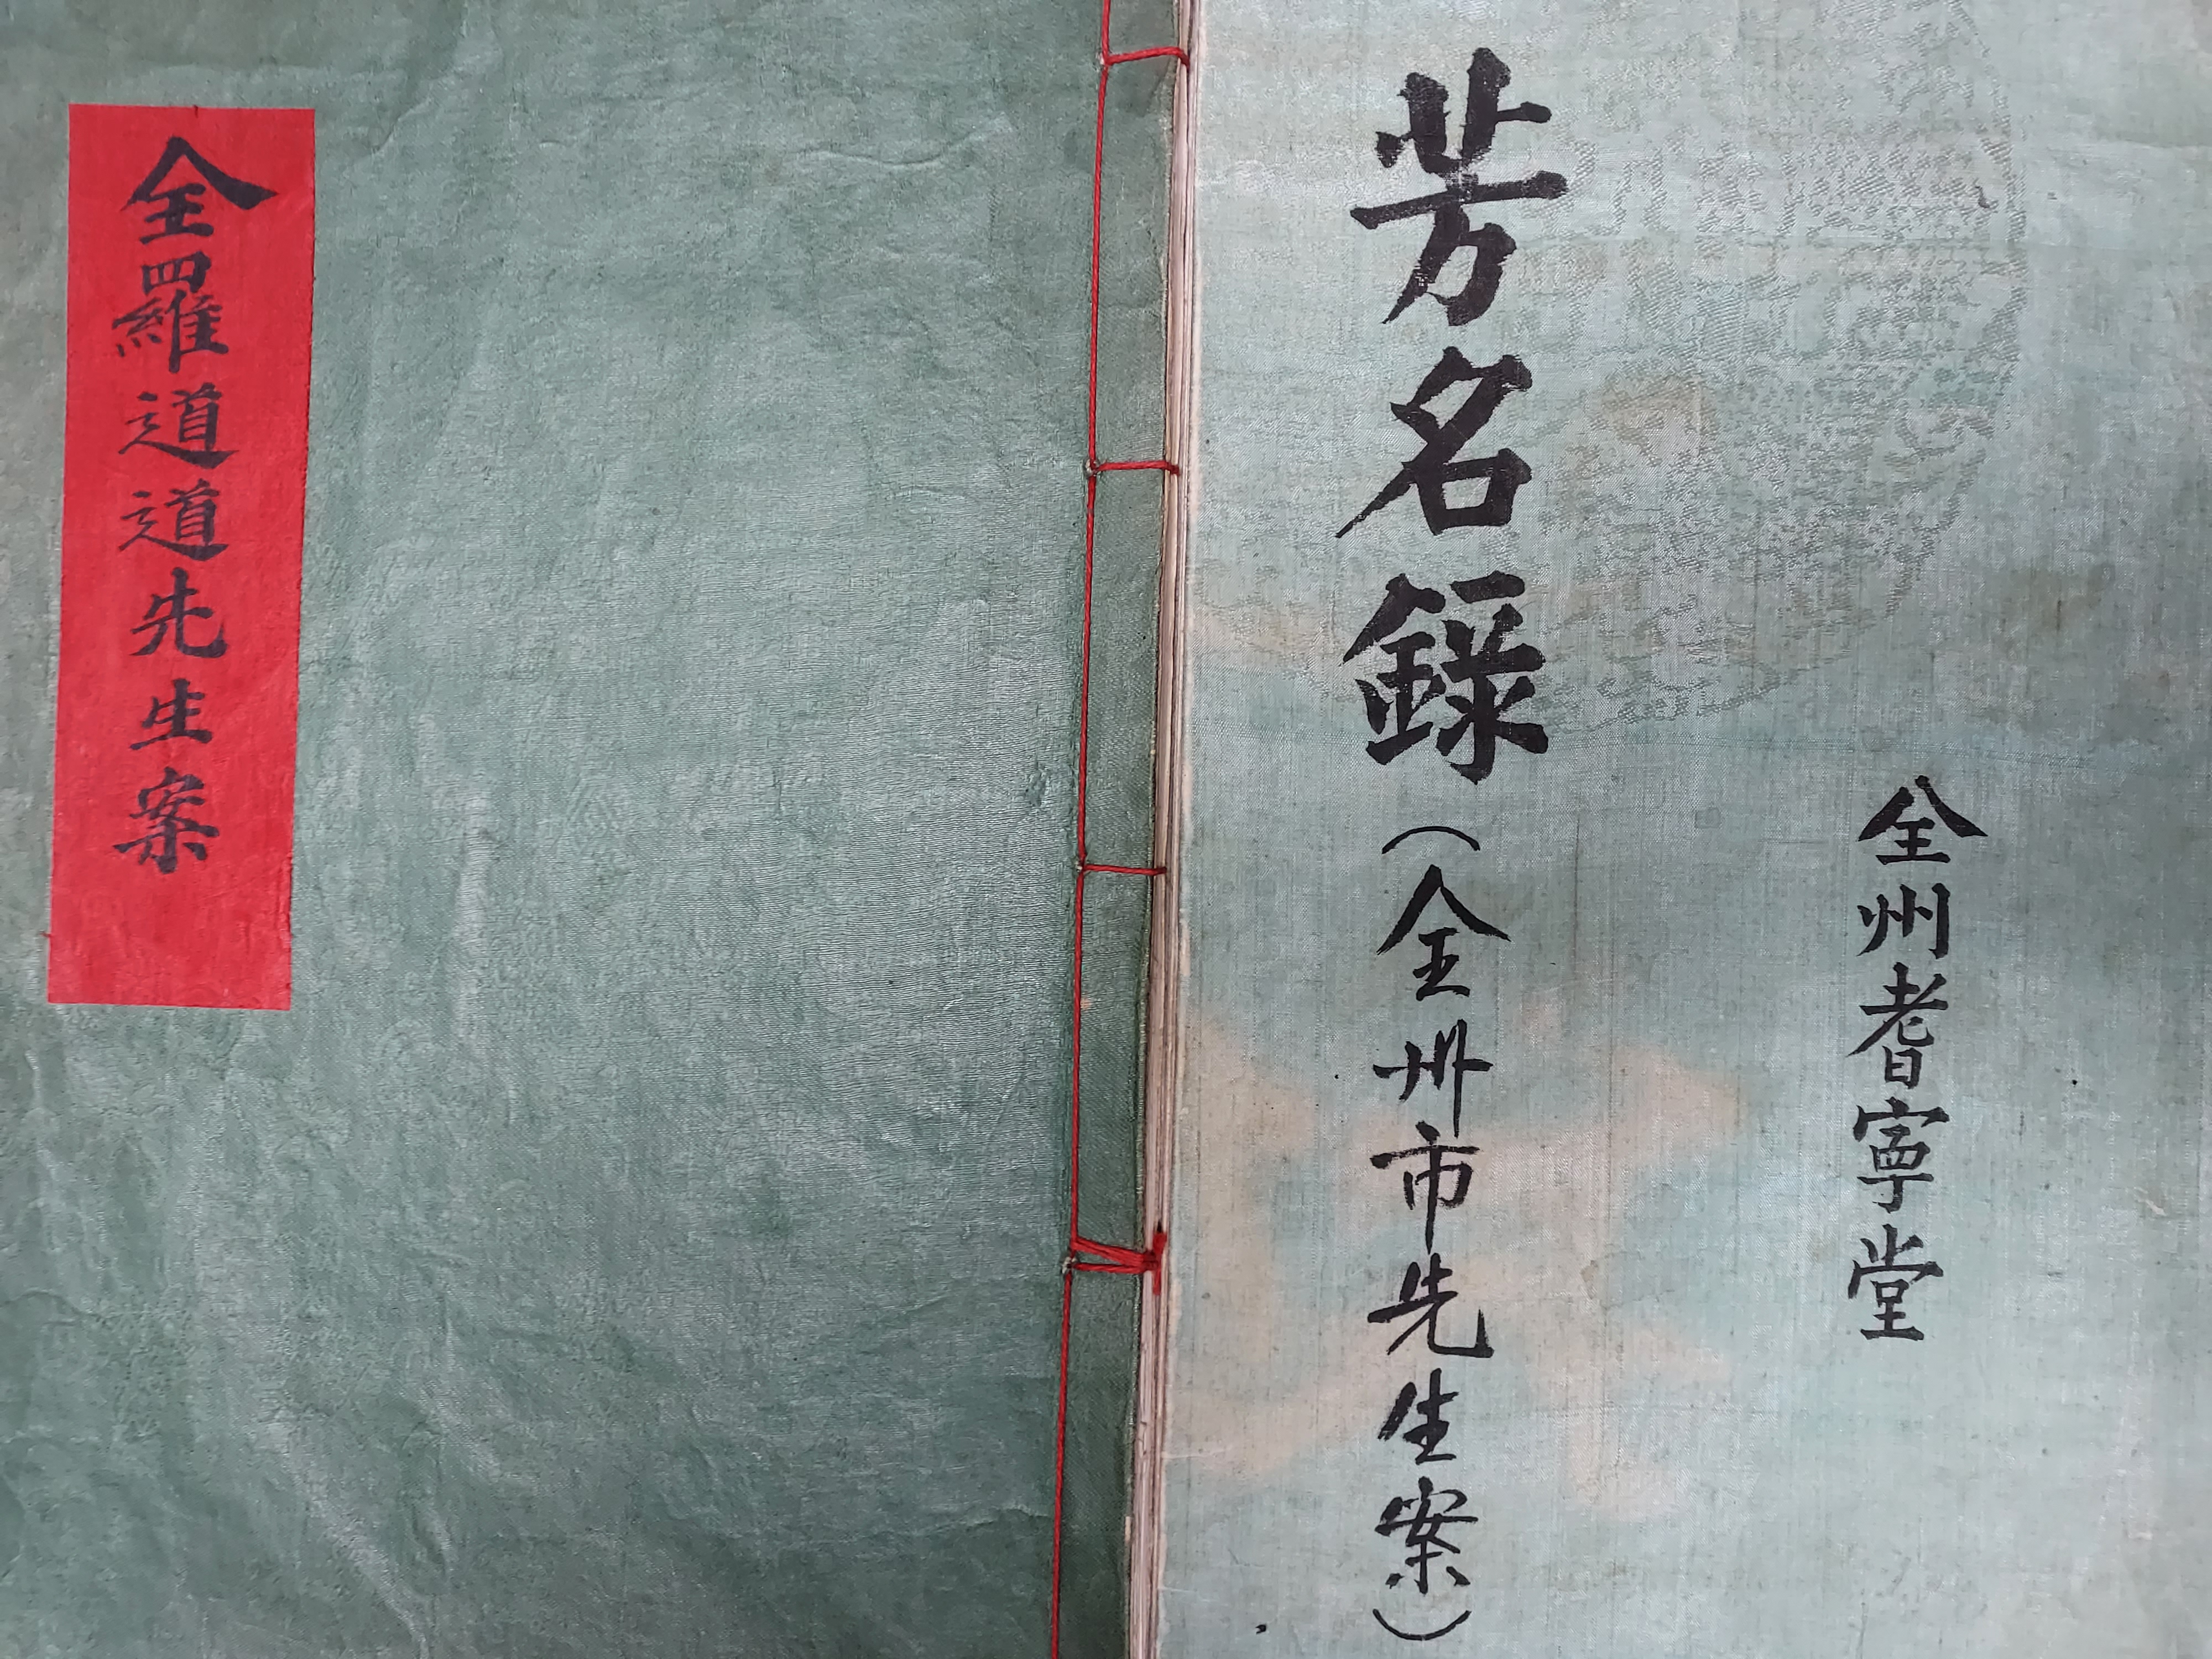 全羅道道先生案
芳名錄(全州市先生案)
全州耆寧堂